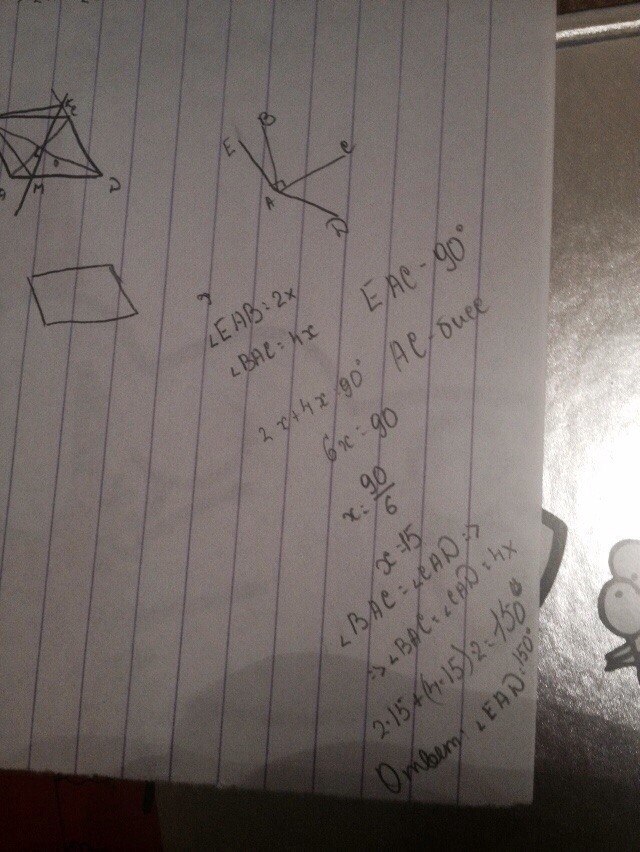 K
M
D
E
B
C
A
D
∠EAB = 2x
∠BAC = 4x
EAC - 90°
AC - бисс
2x+4x=90°
6x=90
x=90/6
x=15
∠BAC = ∠CAD =>
=> ∠BAC = ∠CAD = 4x
2·15+(4·15)·2=150°
Ответ: ∠EAD=150°